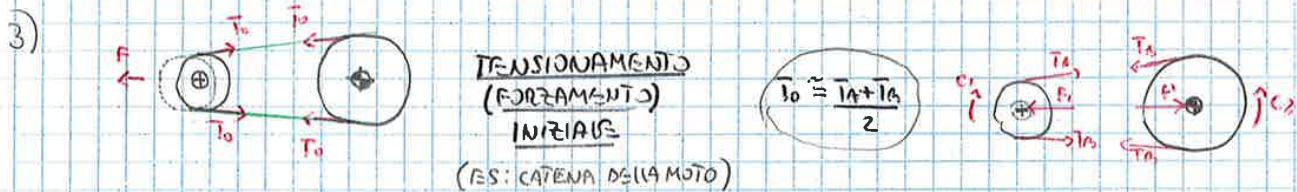 3)
F T0 T0
T0 T0
TENSIONAMENTO
(FORZAMENTO)
INIZIALE
(ES: CATENA DELLA MOTO)
T0 ≅ TA+TB
2
C1 TA F1 TB
TA F1 TB C2